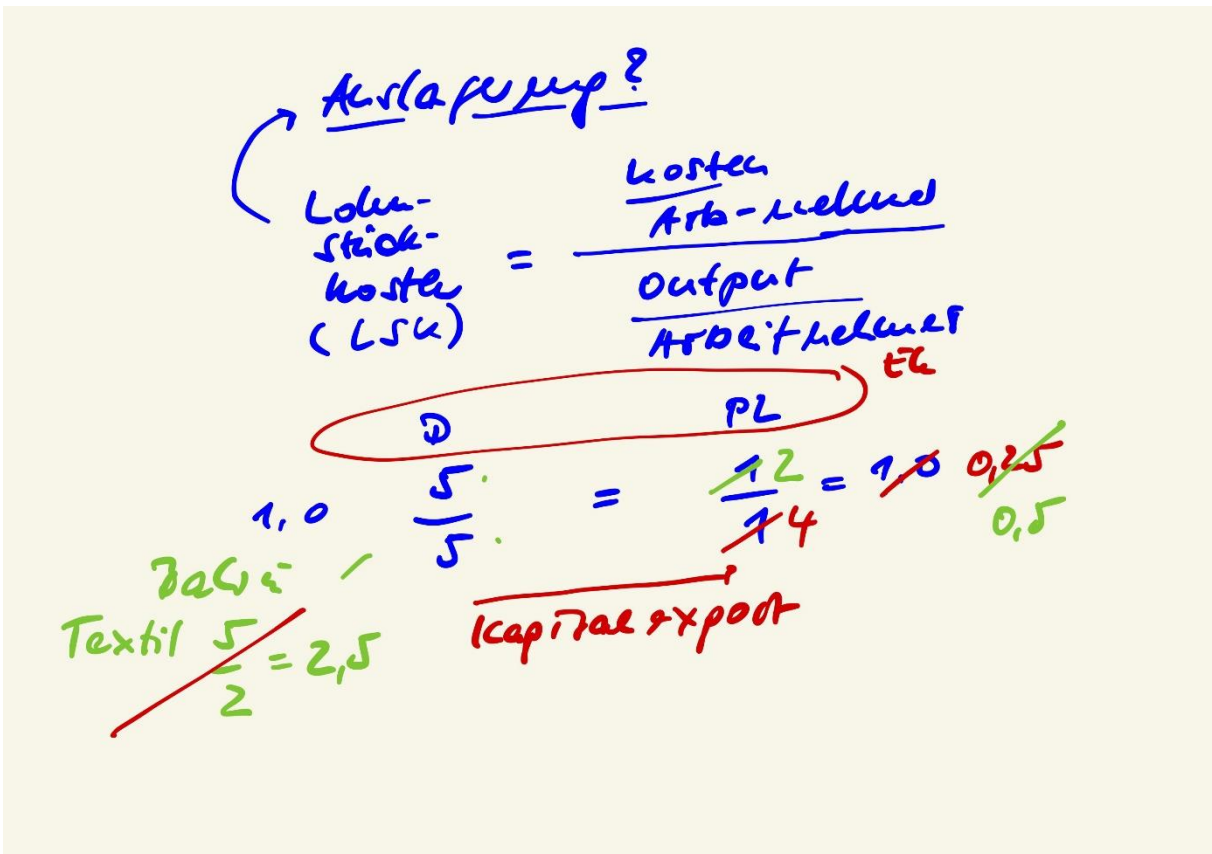 Auslagerung?
Lohn-
stück-
kosten
(LSK)
=
Kosten
Arb-nehmer
Output
Arbeitnehmer
D PL
1,0 5/5 = 1 2/1 4 = 1,0 0,25
0,5
Textil 5/2 = 2,5
Kapitalexport